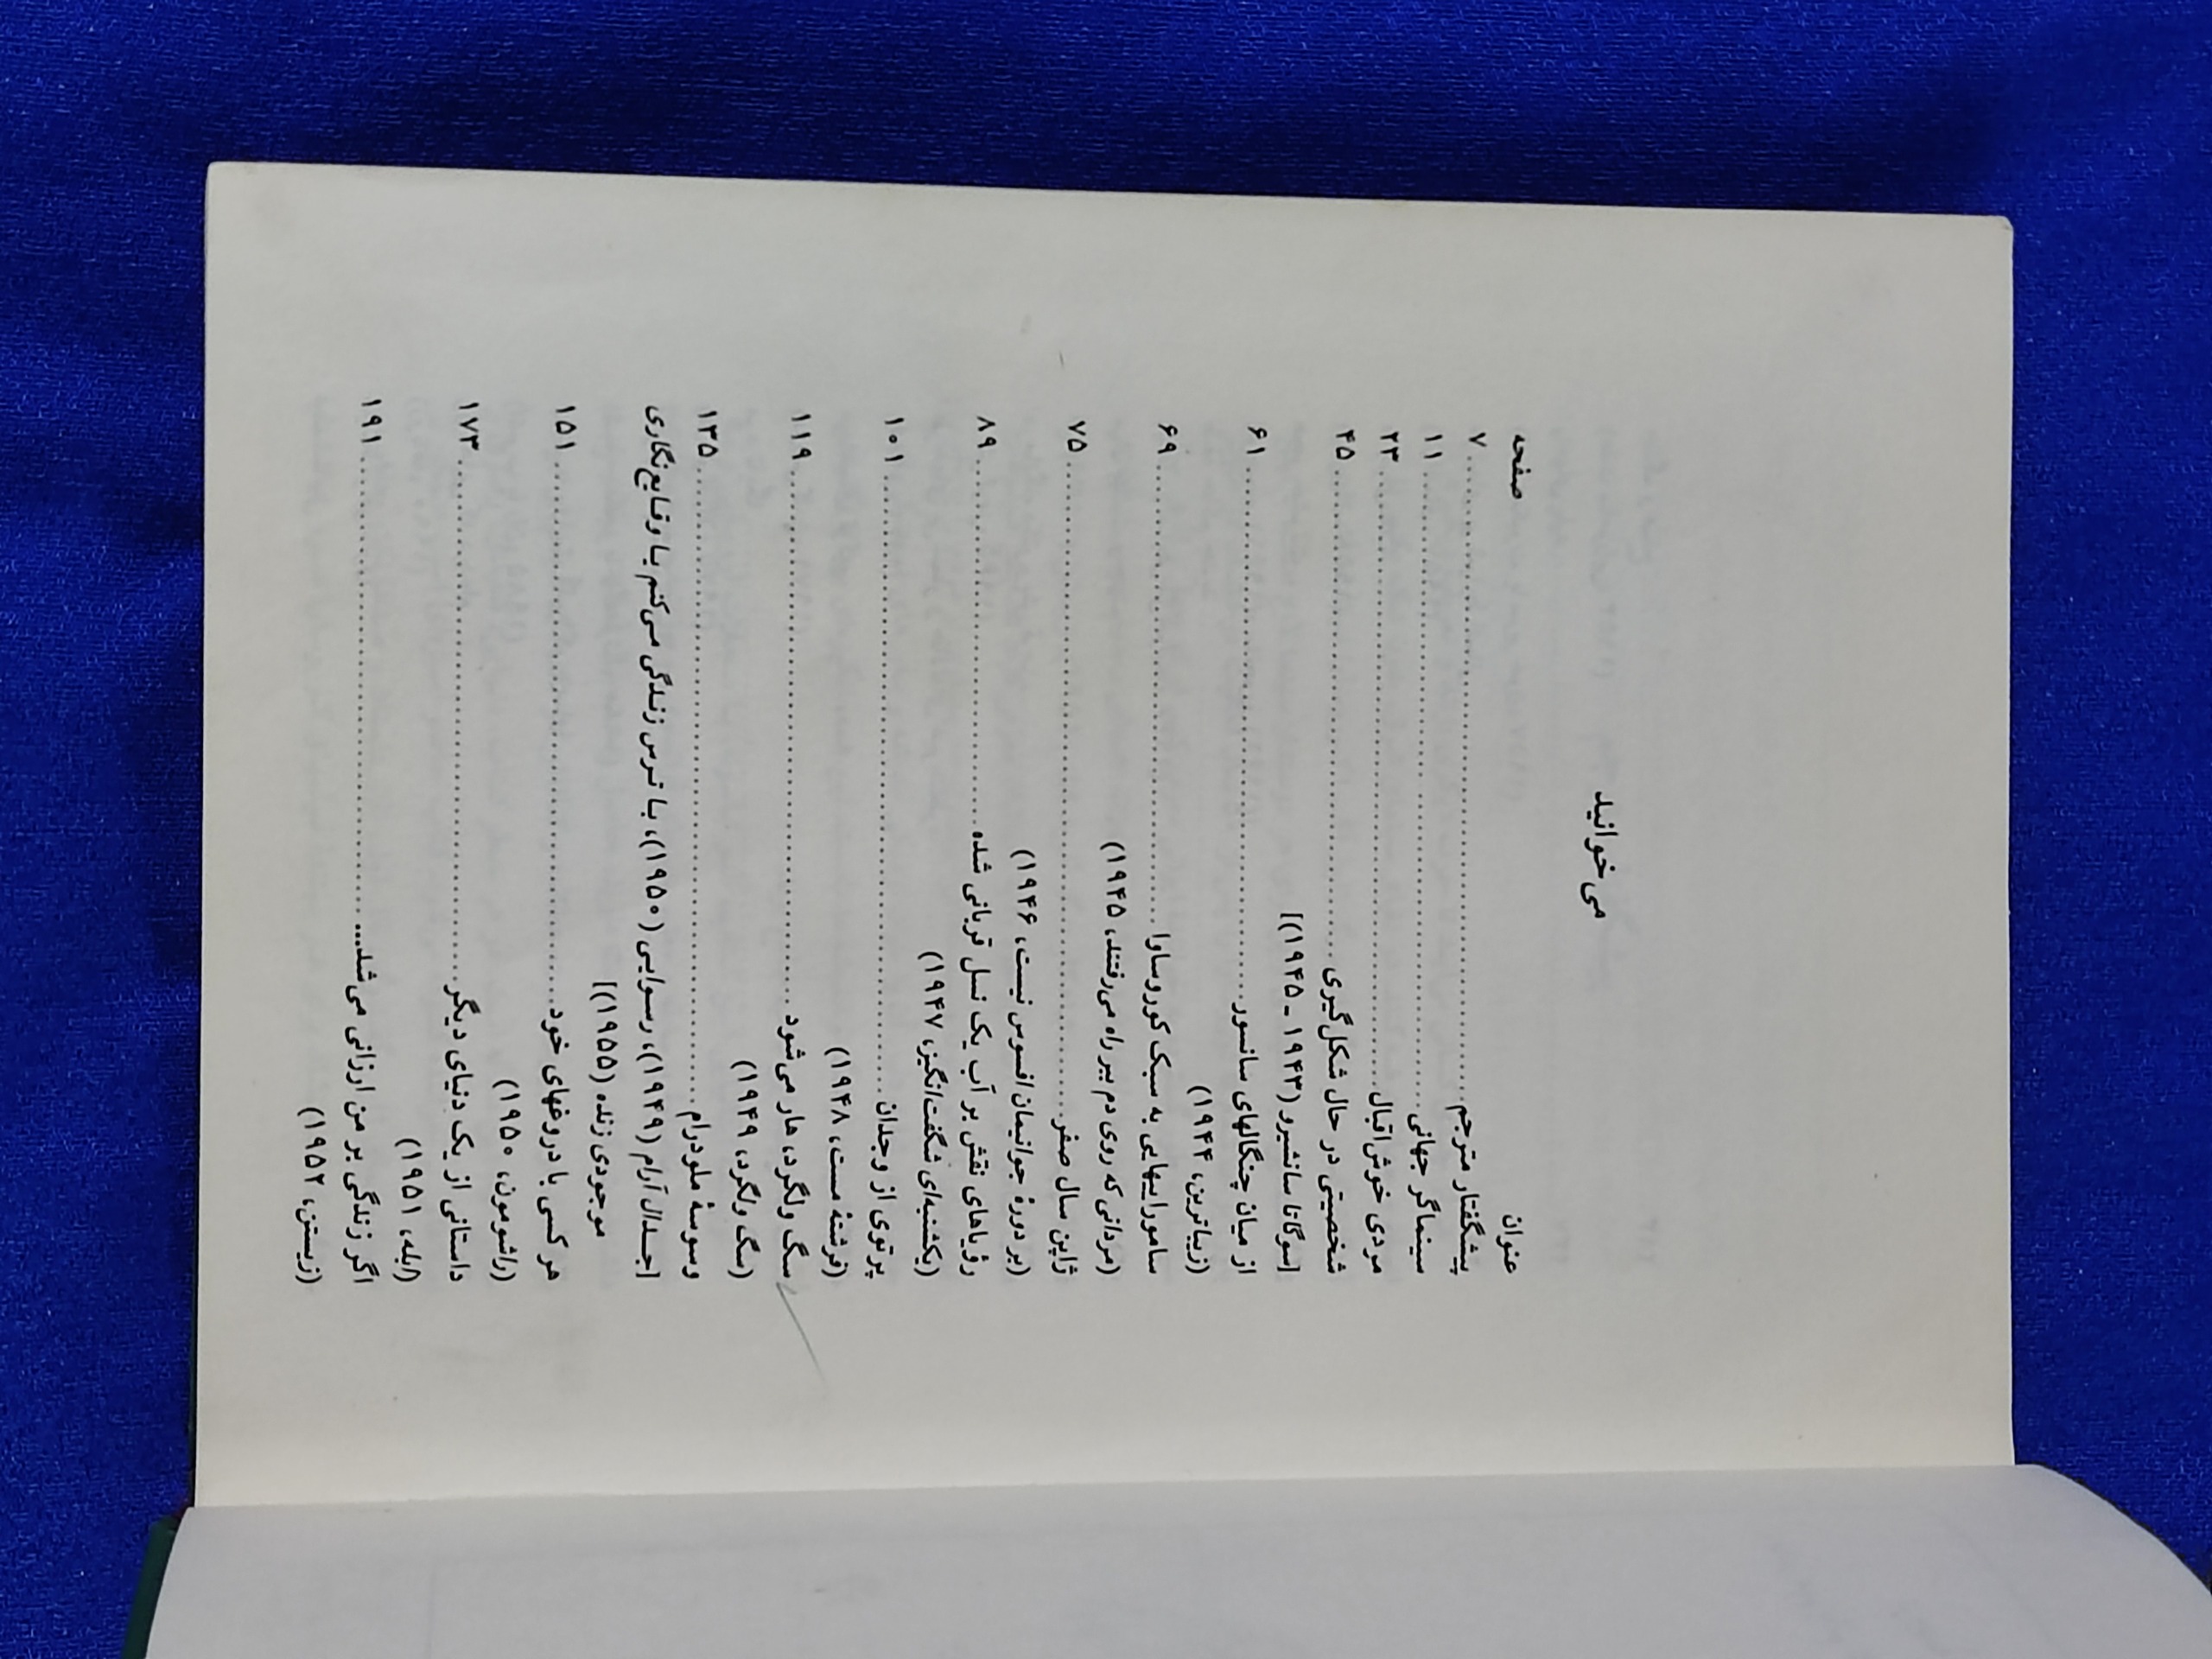 می‌خوانید
عنوان صفحه
پیشگفتار مترجم ۷
سینماگر جهانی ۱۱
مردی خوش‌اقبال ۲۳
شخصیتی در حال شکل‌گیری ۴۵
[سوگاتا سانشیرو (۱۹۴۳ ـ ۱۹۴۵)]
از میان چنگالهای سانسور ۶۱
(زیباترین، ۱۹۴۴)
ساموراییهایی به سبک کوروساوا ۶۹
(مردانی که روی دم ببر راه می‌رفتند، ۱۹۴۵)
ژاپن سال صفر ۷۵
(بر دورهٔ جوانیمان افسوس نیست، ۱۹۴۶)
رؤیاهای نقش بر آب یک نسل قربانی شده ۸۹
(یکشنبه‌ای شگفت‌انگیز، ۱۹۴۷)
پرتوی از وجدان ۱۰۱
(فرشتهٔ مست، ۱۹۴۸)
سگ ولگرد، هار می‌شود ۱۱۹
(سگ ولگرد، ۱۹۴۹)
وسوسهٔ ملودرام ۱۳۵
[جدال آرام (۱۹۴۹)، رسوایی (۱۹۵۰)، با ترس زندگی می‌کنم یا وقایع‌نگاری
موجودی زنده (۱۹۵۵)]
هر کسی با دروغهای خود ۱۵۱
(راشومون، ۱۹۵۰)
داستانی از یک دنیای دیگر ۱۷۳
(ابله، ۱۹۵۱)
اگر زندگی بر من ارزانی می‌شد... ۱۹۱
(زیستن، ۱۹۵۲)